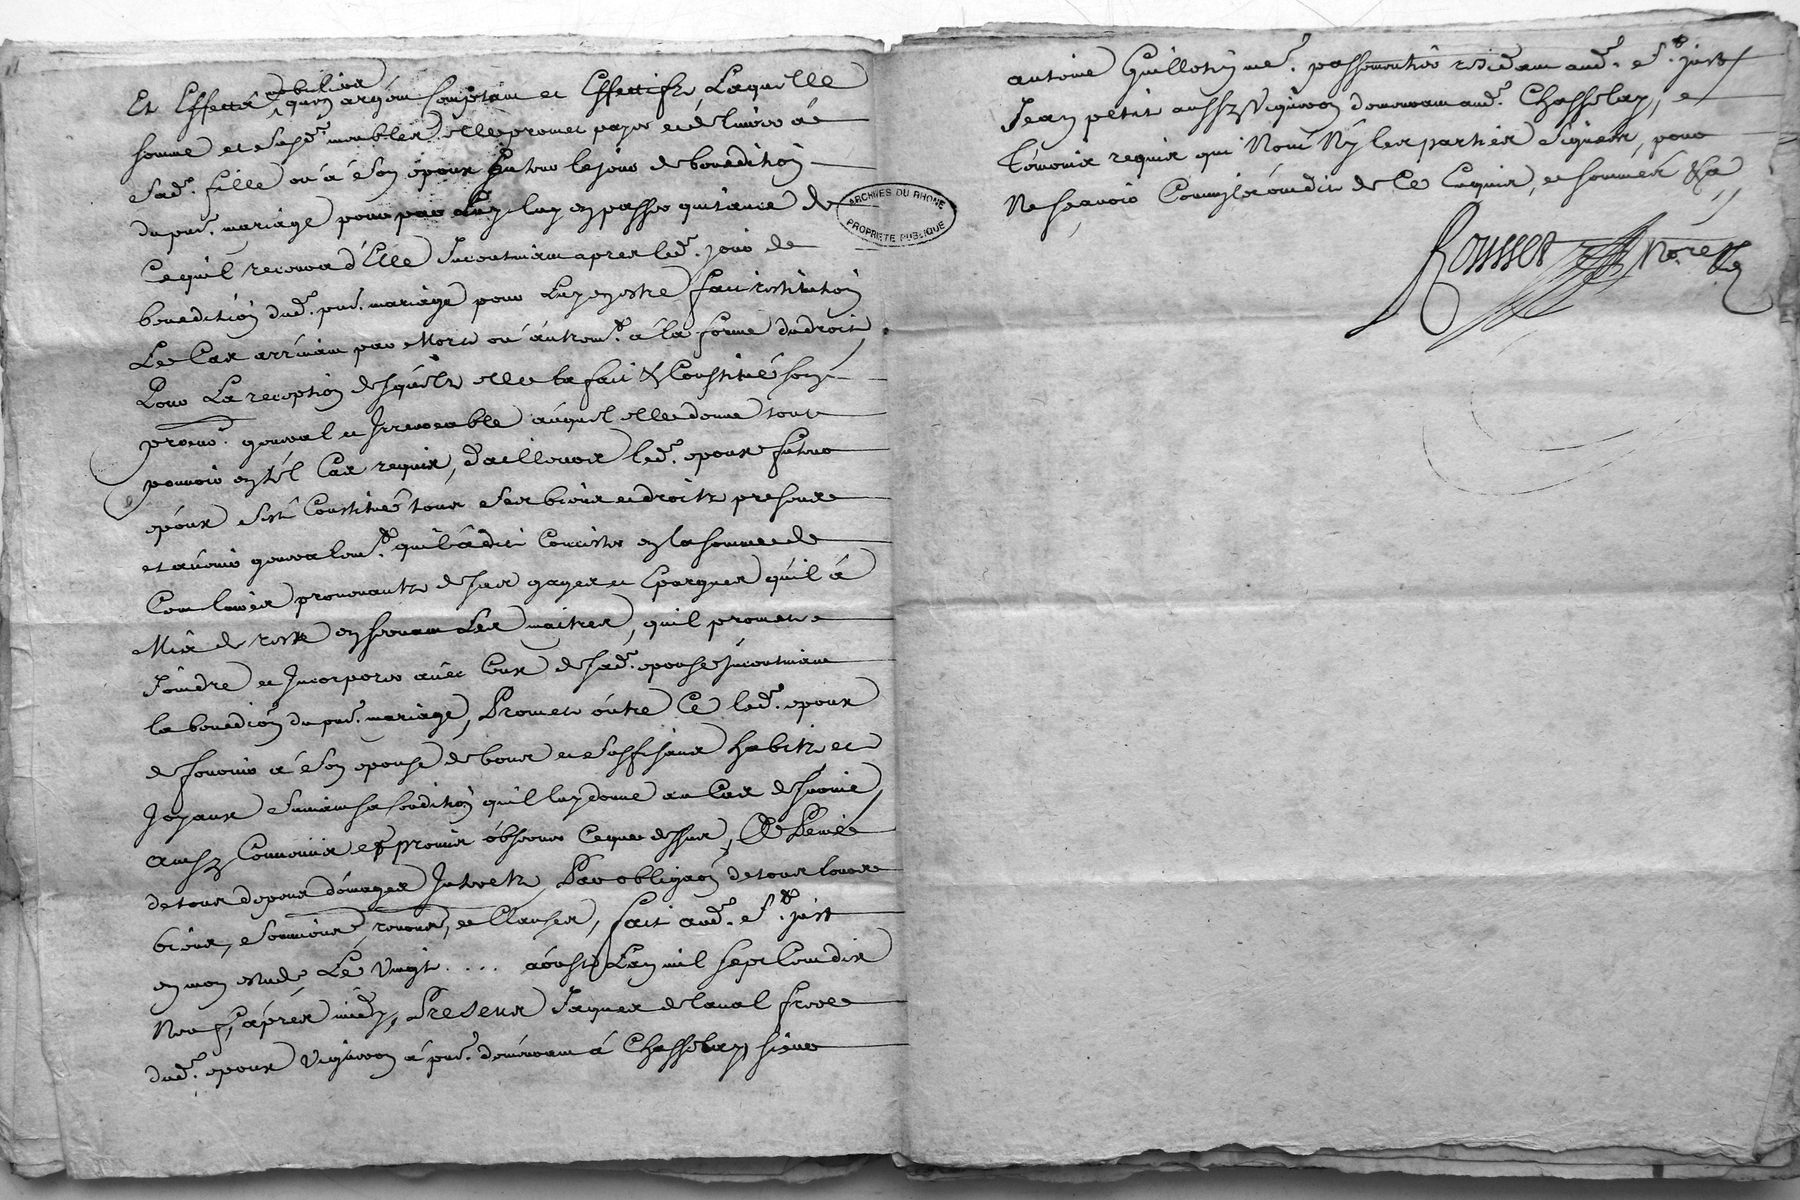 Et Effects mobiliers
qu'en argent Comptant et Effectifz, Laquelle
somme et susd. meubles elle promet payer et deslivrer à
sad. fille ou à son époux futur le jour de benediction
du pnt. mariage pour par luy en passer quitance de
Ce qu'il recevra d'Elle Incontinant apres led. jour de
benediction dud. pnt. mariage pour Luy en estre fait restitution
Le Cas arrivant par Mort ou autrem.t à la forme du droit,
Pour La reception desquels elle la fait & Constitué son
procur. general et Irrevocable auquel elle donne tout
pouvoir en tel Cas requis, d'ailleurs led. epoux futur
epoux s'est Constitué tous ses biens et droitz presents
et avenir generalem.t qu'il a dit Consister en la somme de
Cent livres provenants de ses gages et Epargnes qu'il à
Mis de reste en servant Les maitres, qu'il promet
Joindre et Incorporer avéc Ceux de sad. epouse Incontinant
la benedion du pnt. mariage, Promet outre Ce led. epoux
de fournir à son epouse de bons et suffisans habitz et
Joyaux suivant sa Condition qu'il luy donne au Cas de survie,
Ainsy Convenu et promis observer Ce que dessus, à Peine
de tous depens domages Interetz, Par obligaon de tous leurs
biens, soumions, renons, et Clauses, fait aud. St. just
en mon etude Le Vingt .... aoust L'an mil sept Cent dix
Neuf, après midy, Presens Jaques de laval frere
dud. epoux Vigneron à pnt. demeurant à Chasselay, sieur
antoine Guillotin me. passementier residant aud. St. just
Jean petit aussy Vigneron demeurant aud. Chasselay, et
Témoins requis qui N'ont Ny les parties Signéz, pour
Ne sçavoir Comme ils ont dit de Ce Enquis, et sommés &a
Rousset Nore Rl
ARCHIVES DU RHONE
PROPRIETE PUBLIQUE